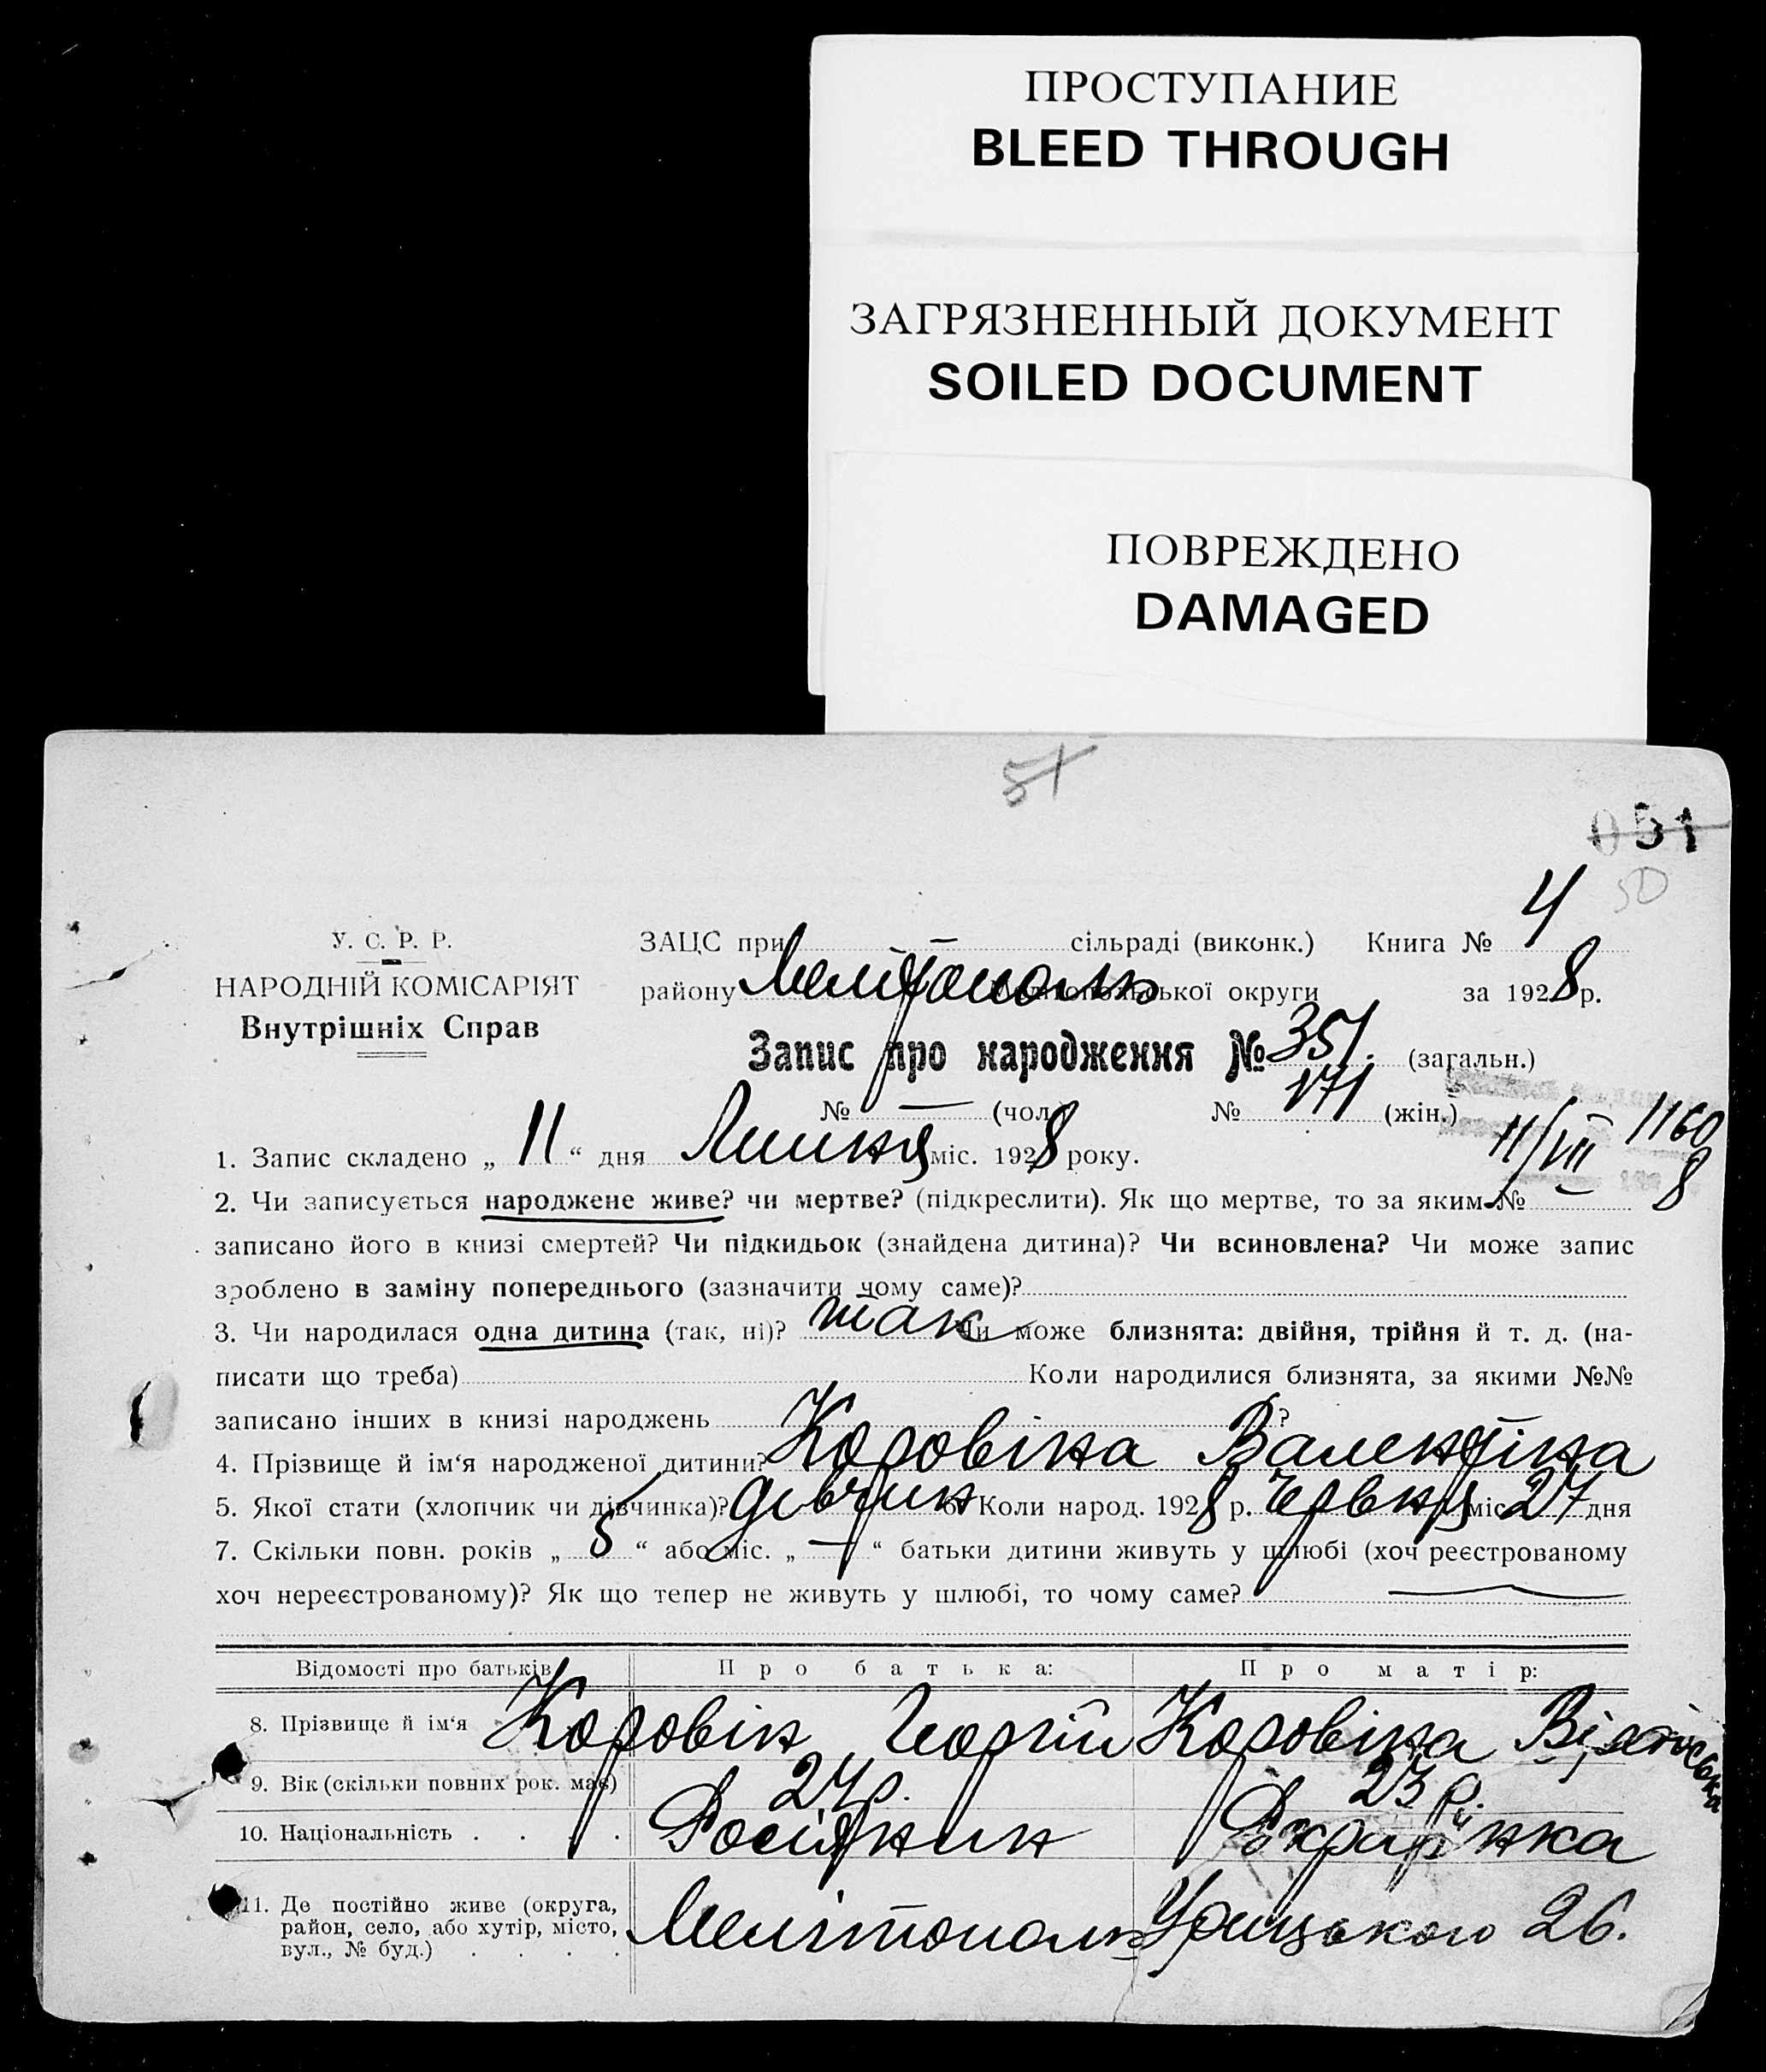 ПРОСТУПАНИЕ
BLEED THROUGH
ЗАГРЯЗНЕННЫЙ ДОКУМЕНТ
SOILED DOCUMENT
ПОВРЕЖДЕНО
DAMAGED
51
051
50
У. С. Р. Р.
НАРОДНІЙ КОМІСАРІЯТ
Внутрішніх Справ
ЗАЦС при — сільраді (виконк.) Книга № 4
району Мелітополь Мелітопольської округи за 1928 р.
Запис про народження № 351. (загальн.)
№ — (чол.) № 171 (жін.)
11/VII 1160
8
1. Запис складено „ 11 “ дня Липня міс. 1928 року.
2. Чи записується народжене живе? чи мертве? (підкреслити). Як що мертве, то за яким № —
записано його в книзі смертей? Чи підкидьок (знайдена дитина)? Чи всиновлена? Чи може запис
зроблено в заміну попереднього (зазначити чому саме)?
3. Чи народилася одна дитина (так, ні)? так Чи може близнята: двійня, трійня й т. д. (на-
писати що треба) Коли народилися близнята, за якими №№
записано інших в книзі народжень ?
4. Прізвище й ім‘я народженої дитини? Коровіна Валентіна
5. Якої стати (хлопчик чи дівчинка)? дівчин 6. Коли народ. 1928 р. Червня міс. 27 дня
7. Скільки повн. років „ 5 “ або міс. „ — “ батьки дитини живуть у шлюбі (хоч реєстрованому
хоч нереєстрованому)? Як що тепер не живуть у шлюбі, то чому саме? —
Відомості про батьків Про батька: Про матір:
8. Прізвище й ім‘я Коровін Георгій Коровіна
9. Вік (скільки повних рок. має) 27 р. 23 р.
10. Національність . . . . Росіянин Українка
11. Де постійно живе (округа,
район, село, або хутір, місто,
вул., № буд.) . . . . Мелітополь Урицького 26.